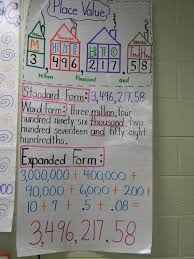 Place Value
M HTO HTO
3, 496, 217. 58
Million thousand and
Standard Form: 3,496,217.58
Word form: Three million, four
hundred ninety six thousand, two
hundred seventeen and fifty eight
hundredths.
Expanded Form:
3,000,000 + 400,000 +
90,000 + 6,000 + 200
10 + 7 + .5 + .08 =
3,496,217.58